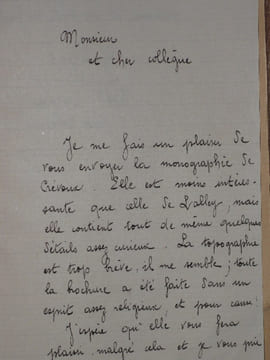 Monsieur
et cher collègue
Je me fais un plaisir de
vous envoyer la monographie de
Crévoux. Elle est moins intéres-
sante que celle de Lalley, mais
elle contient tout de même quelques
détails assez curieux. La topographie
est trop brève, il me semble ; toute
la brochure a été faite dans un
esprit assez religieux, et pour cause !
J'espère qu'elle vous fera
plaisir, malgré cela et je vous prie